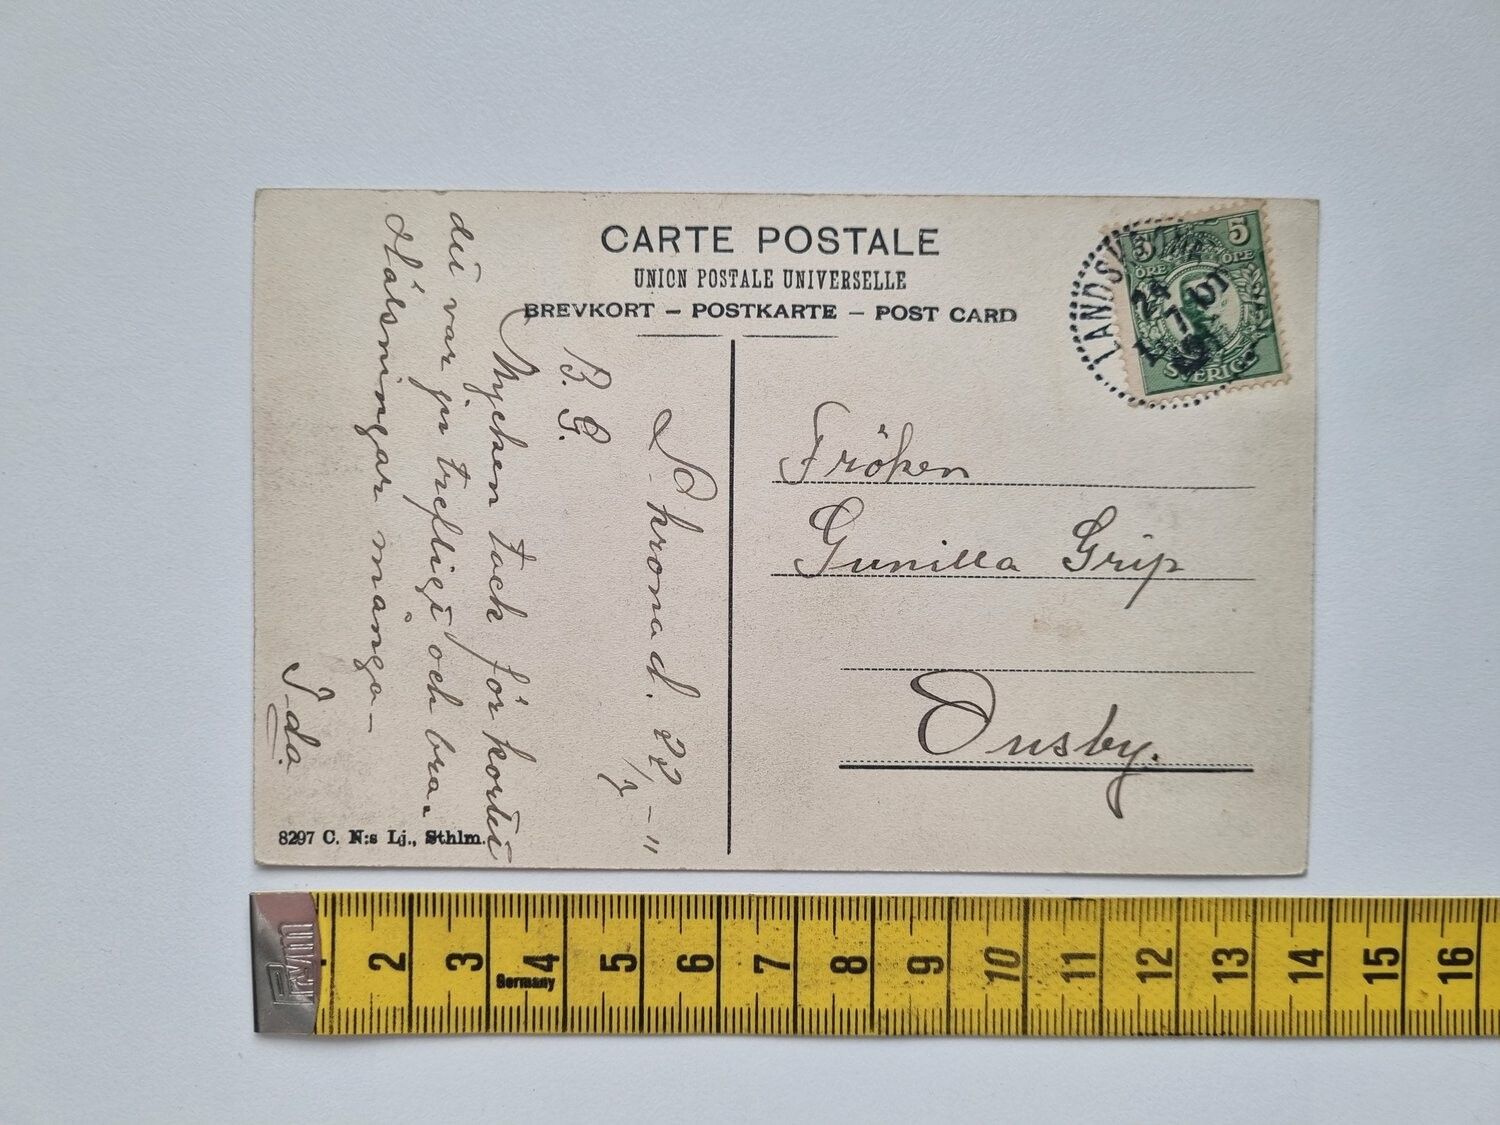 CARTE POSTALE
UNION POSTALE UNIVERSELLE
BREVKORT – POSTKARTE – POST CARD
5 5
ÖRE ÖRE
SVERIGE
24
Fröken
Gunilla Grip
Ousby.
22/1 – "
B. G.
Mycken tack för kortet
det var ju trefligt och bra.
Hälsningar många –
Ida.
8297 C. N:s Lj., Sthlm.
2 3 4 5 6 7 8 9 10 11 12 13 14 15 16
Germany